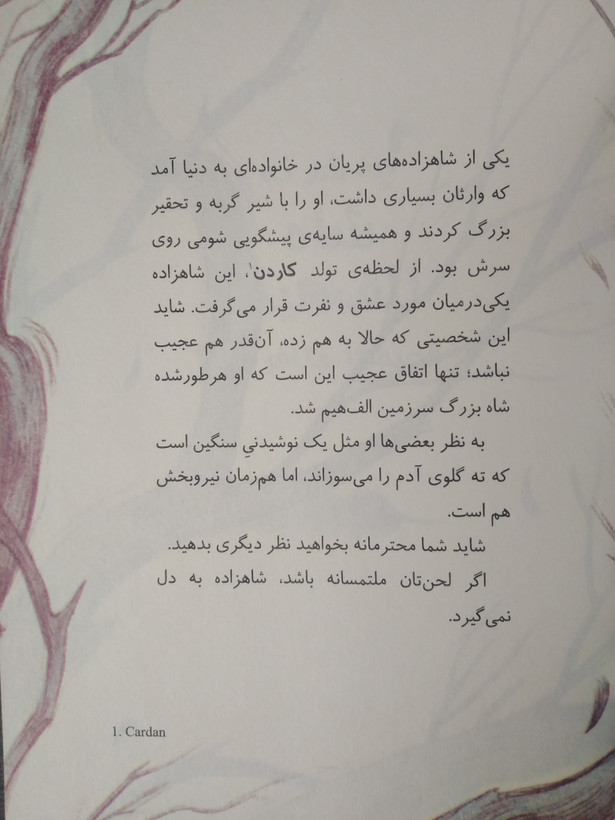 یکی از شاهزاده‌های پریان در خانواده‌ای به دنیا آمد
که وارثان بسیاری داشت، او را با شیر گربه و تحقیر
بزرگ کردند و همیشه سایه‌ی پیشگویی شومی روی
سرش بود. از لحظه‌ی تولد کاردن¹، این شاهزاده
یکی‌درمیان مورد عشق و نفرت قرار می‌گرفت. شاید
این شخصیتی که حالا به هم زده، آن‌قدر هم عجیب
نباشد؛ تنها اتفاق عجیب این است که او هرطورشده
شاه بزرگ سرزمین الف‌هیم شد.
به نظر بعضی‌ها او مثل یک نوشیدنیِ سنگین است
که ته گلوی آدم را می‌سوزاند، اما هم‌زمان نیروبخش
هم است.
شاید شما محترمانه بخواهید نظر دیگری بدهید.
اگر لحن‌تان ملتمسانه باشد، شاهزاده به دل
نمی‌گیرد.
1. Cardan